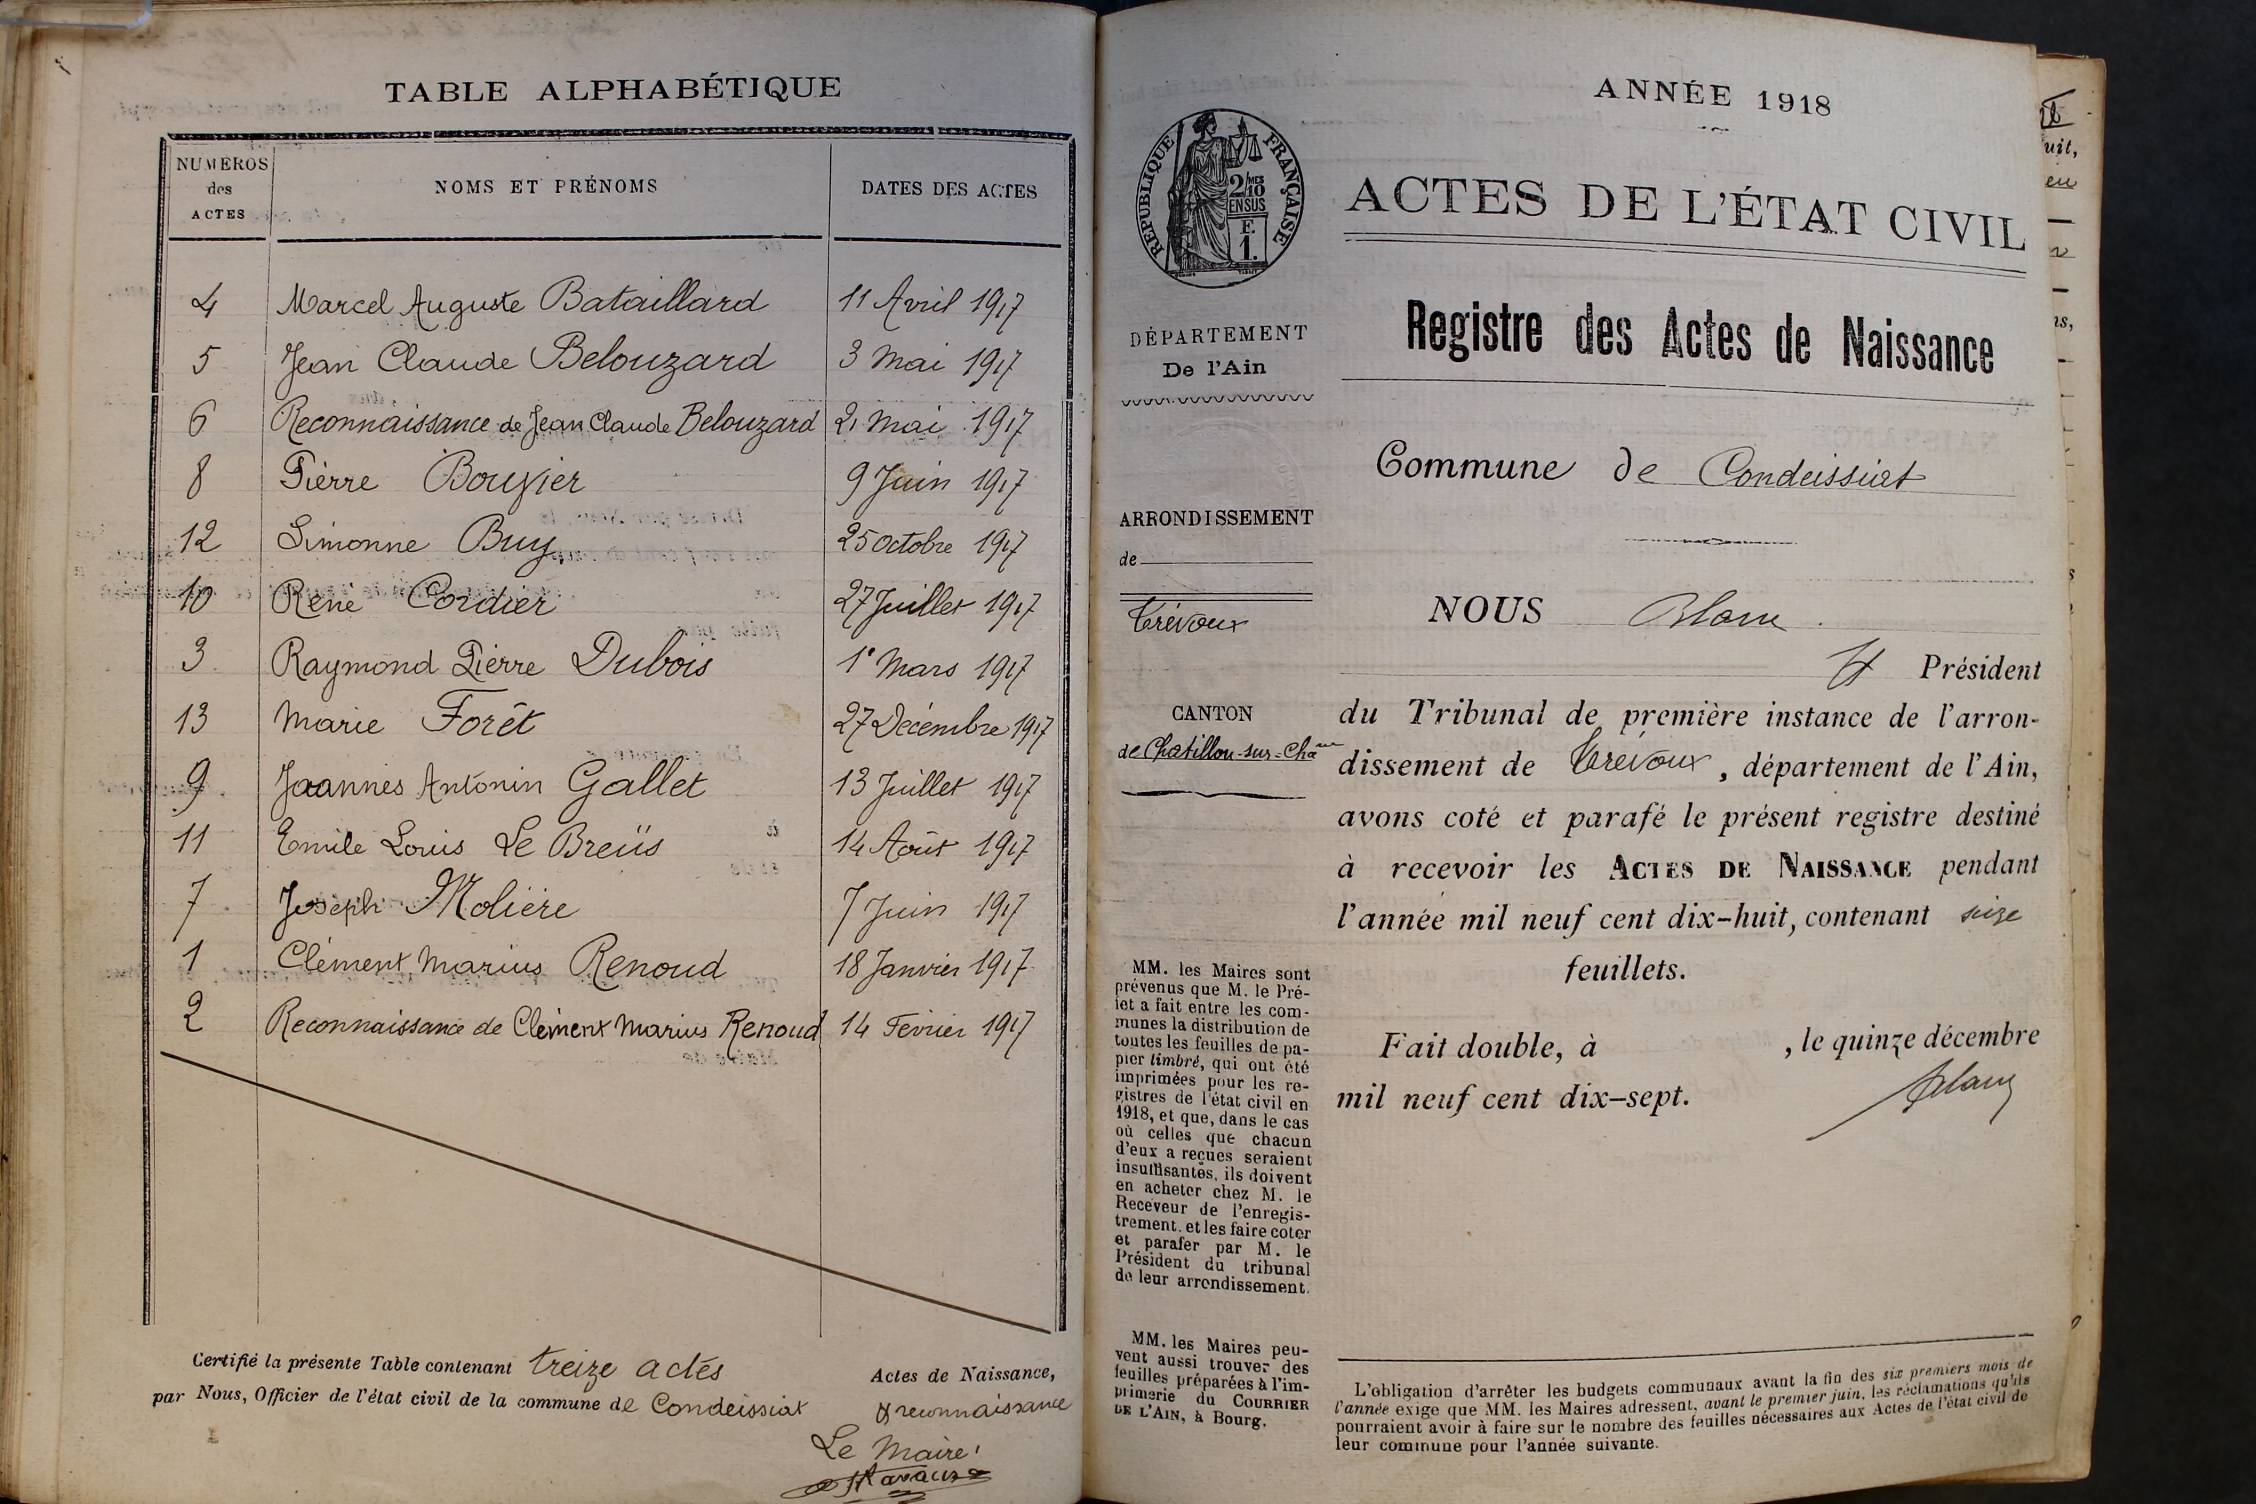 TABLE ALPHABÉTIQUE
NUMÉROS des ACTES NOMS ET PRÉNOMS DATES DES ACTES
4 Marcel Auguste Bataillard 11 Avril 1917
5 Jean Claude Belouzard 3 Mai 1917
6 Reconnaissance de Jean Claude Belouzard 21 Mai 1917
8 Pierre Bouvier 9 Juin 1917
12 Simonne Buy 25 Octobre 1917
10 René Cordier 27 Juillet 1917
3 Raymond Pierre Dubois 1e Mars 1917
13 Marie Forêt 27 Décembre 1917
9 Joannès Antonin Gallet 13 Juillet 1917
11 Emile Louis Le Breüs 14 Août 1917
7 Joseph Molière 7 Juin 1917
1 Clément Marius Renoud 18 Janvier 1917
2 Reconnaissance de Clément Marius Renoud 14 Février 1917
Certifié la présente Table contenant treize actes Actes de Naissance,
par Nous, Officier de l'état civil de la commune de Condeissiat & reconnaissance
Le Maire
ANNÉE 1918
RÉPUBLIQUE FRANÇAISE
2/10 MES
EN SUS
F.
1.
ACTES DE L'ÉTAT CIVIL
Registre des Actes de Naissance
DÉPARTEMENT
De l'Ain
Commune de Condeissiat
ARRONDISSEMENT
de
Trévoux
NOUS Blanc
Président
CANTON
de Chatillon-sur-Channe
du Tribunal de première instance de l'arron-
dissement de Trévoux, département de l'Ain,
avons coté et parafé le présent registre destiné
à recevoir les ACTES DE NAISSANCE pendant
l'année mil neuf cent dix-huit, contenant seize
feuillets.
Fait double, à , le quinze décembre
mil neuf cent dix-sept.
Blanc
MM. les Maires sont
prévenus que M. le Pré-
fet a fait entre les com-
munes la distribution de
toutes les feuilles de pa-
pier timbré, qui ont été
imprimées pour les re-
gistres de l'état civil en
1918, et que, dans le cas
où celles que chacun
d'eux a reçues seraient
insuffisantes, ils doivent
en acheter chez M. le
Receveur de l'enregis-
trement, et les faire coter
et parafer par M. le
Président du tribunal
de leur arrondissement.
MM. les Maires peu-
vent aussi trouver des
feuilles préparées à l'im-
primerie du COURRIER
DE L'AIN, à Bourg.
L'obligation d'arrêter les budgets communaux avant la fin des six premiers mois de
l'année exige que MM. les Maires adressent, avant le premier juin, les réclamations qu'ils
pourraient avoir à faire sur le nombre des feuilles nécessaires aux Actes de l'état civil de
leur commune pour l'année suivante.